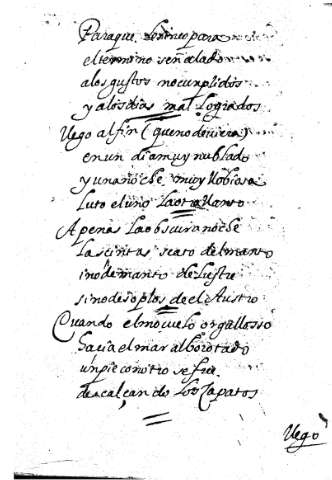 Paraque
el termino señalado
a los gustos no cumplidos
y a los dias mal logrados
llego al fin (que no deviera)
en un dia muy nublado
y una noche muy llobiosa
luto el uno la otra llanto
Apenas la obscura noche
las cintas scato del manto
ino de manto de lustre
sino de soplos de el Austro
Cuando el moçuelo orgallosso
hacia el mar alborotado
un pie con otro se fue
descalçando los Çapatos
llego